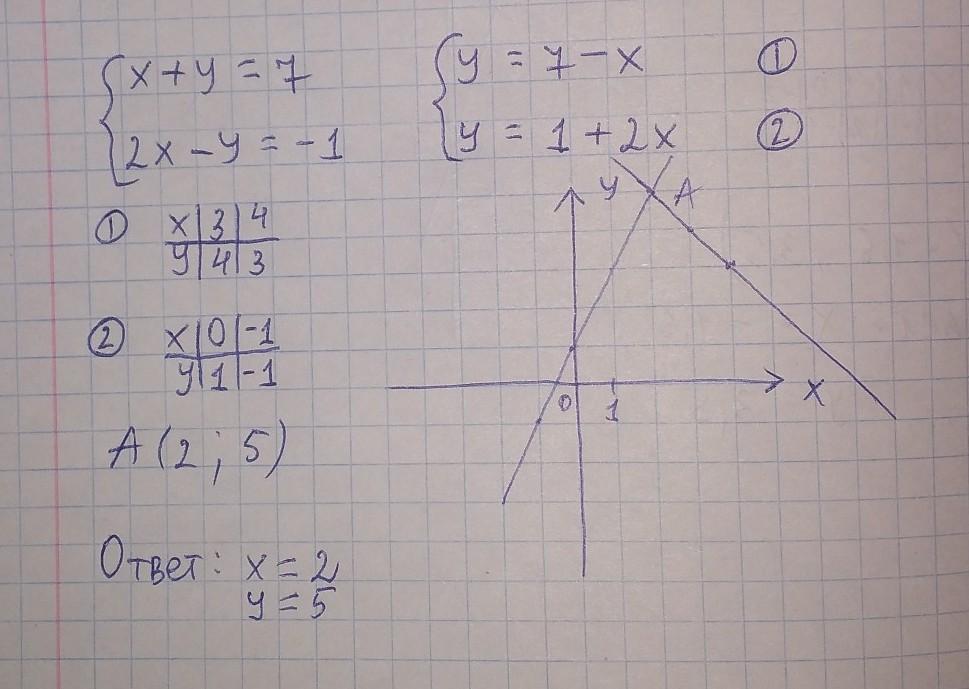 x + y = 7
2x - y = -1
y = 7 - x ①
y = 1 + 2x ②
① x | 3 | 4
y | 4 | 3
② x | 0 | -1
y | 1 | -1
A (2 ; 5)
Ответ: x = 2
y = 5
y A
0 1 x